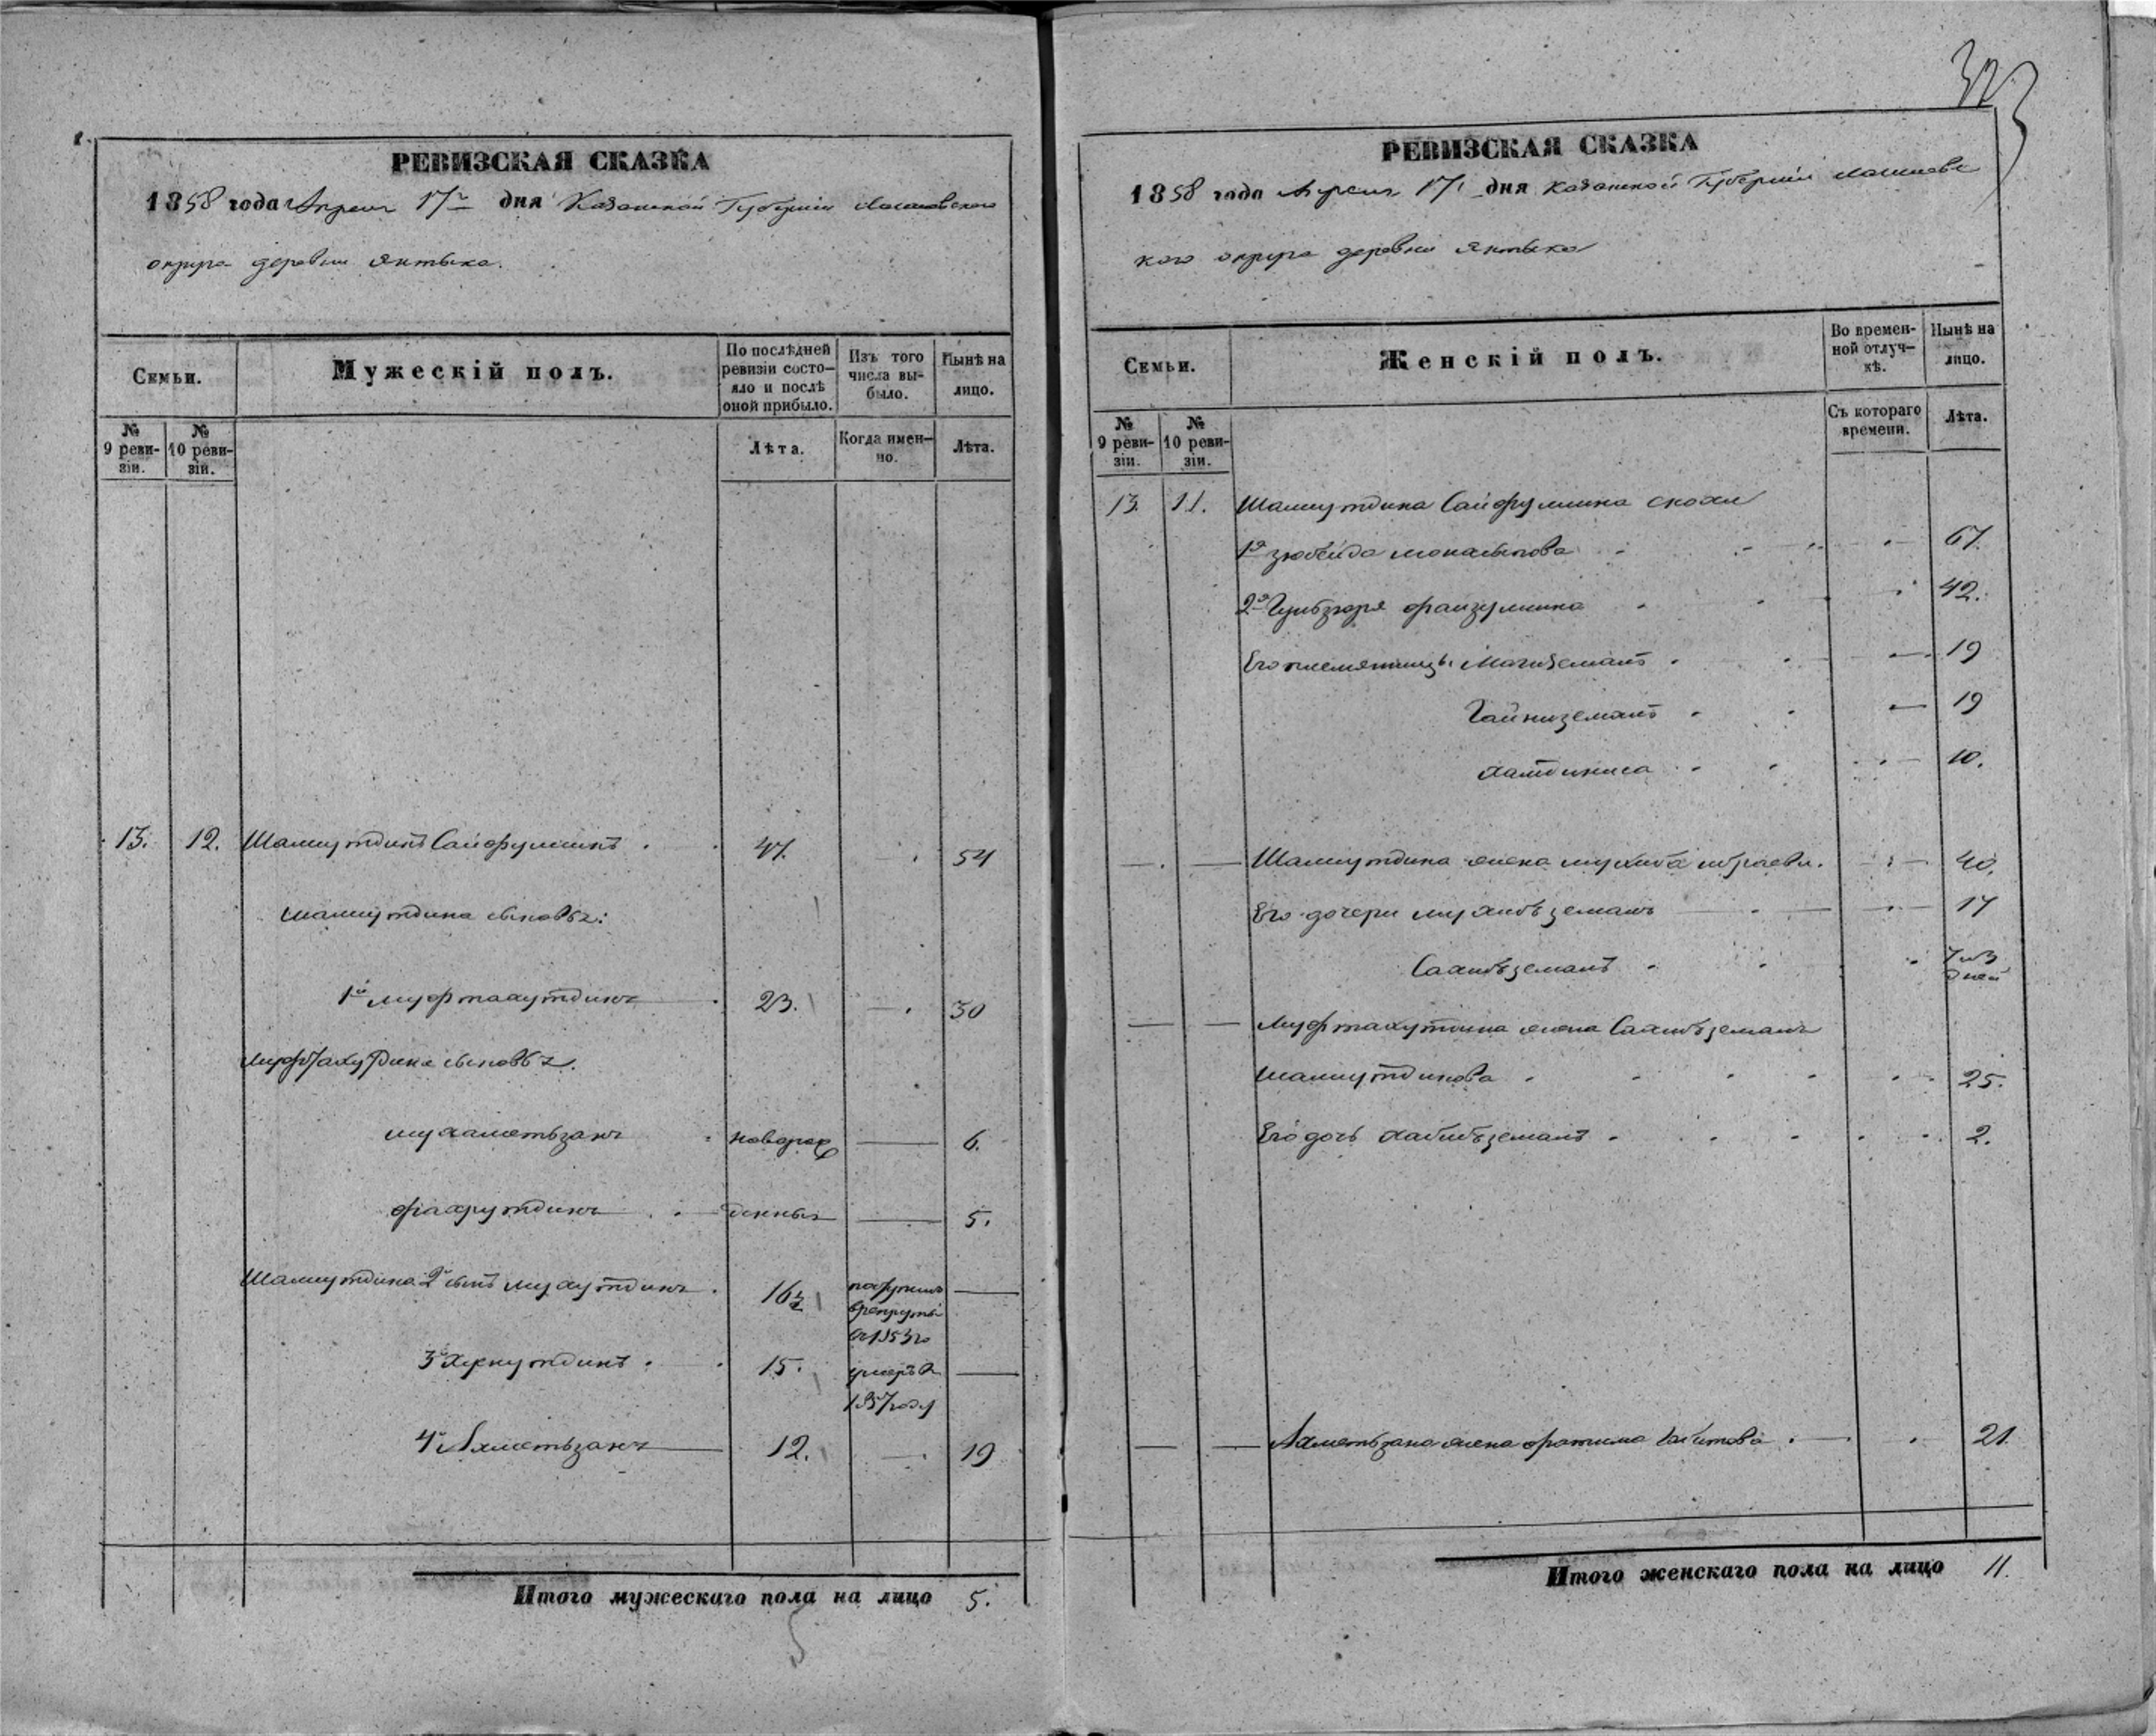 8.
РЕВИЗСКАЯ СКАЗКА
1858 года Апреля 17го дня Казанской Губернии Лаишевскаго
округа деревни Янтыка.
Семьи.
Мужескій полъ.
По послѣдней ревизіи состояло и послѣ оной прибыло.
Изъ того числа выбыло.
Нынѣ на лицо.
№ 9 ревизіи.
№ 10 ревизіи.
Лѣта.
Когда именно.
Лѣта.
13. 12. Шамсутдинъ Сайфуллинъ 47. 54
Шамсутдина сыновья:
1й Муфтахутдинъ 23. 30
Муфтахутдина сыновья.
Мухаметьзянъ новорож 6.
Фахрутдинъ денныя 5.
Шамсутдина 2й сынъ Мухутдинъ 16½
в рекруты
1853го
3й 15. умеръ въ
1857 году
4й Ахметьзянъ 12. 19
Итого мужескаго пола на лицо 5.
323
РЕВИЗСКАЯ СКАЗКА
1858 года Апреля 17. дня Казанской Губернии Лаишевс
каго округа деревни Янтыка
Семьи.
Женскій полъ.
Во временной отлучкѣ.
Нынѣ на лицо.
№ 9 ревизіи.
№ 10 ревизіи.
Съ котораго времени.
Лѣта.
13. 11. Шамсутдина Сайфуллина
1я Зюбейда 67.
2я Гульзюря Файзуллина 42.
Его племянницы Магиземалъ 19
Гайниземалъ 19
10.
Шамсутдина жена 40.
Его дочери Мухибземалъ 17
Сахибземалъ 7и3
дней
Муфтахутдина жена Сахибземалъ
Шамсутдинова 25.
Его дочь Хабибземалъ 2.
Ахметьзяна жена Фатима 21.
Итого женскаго пола на лицо 11.